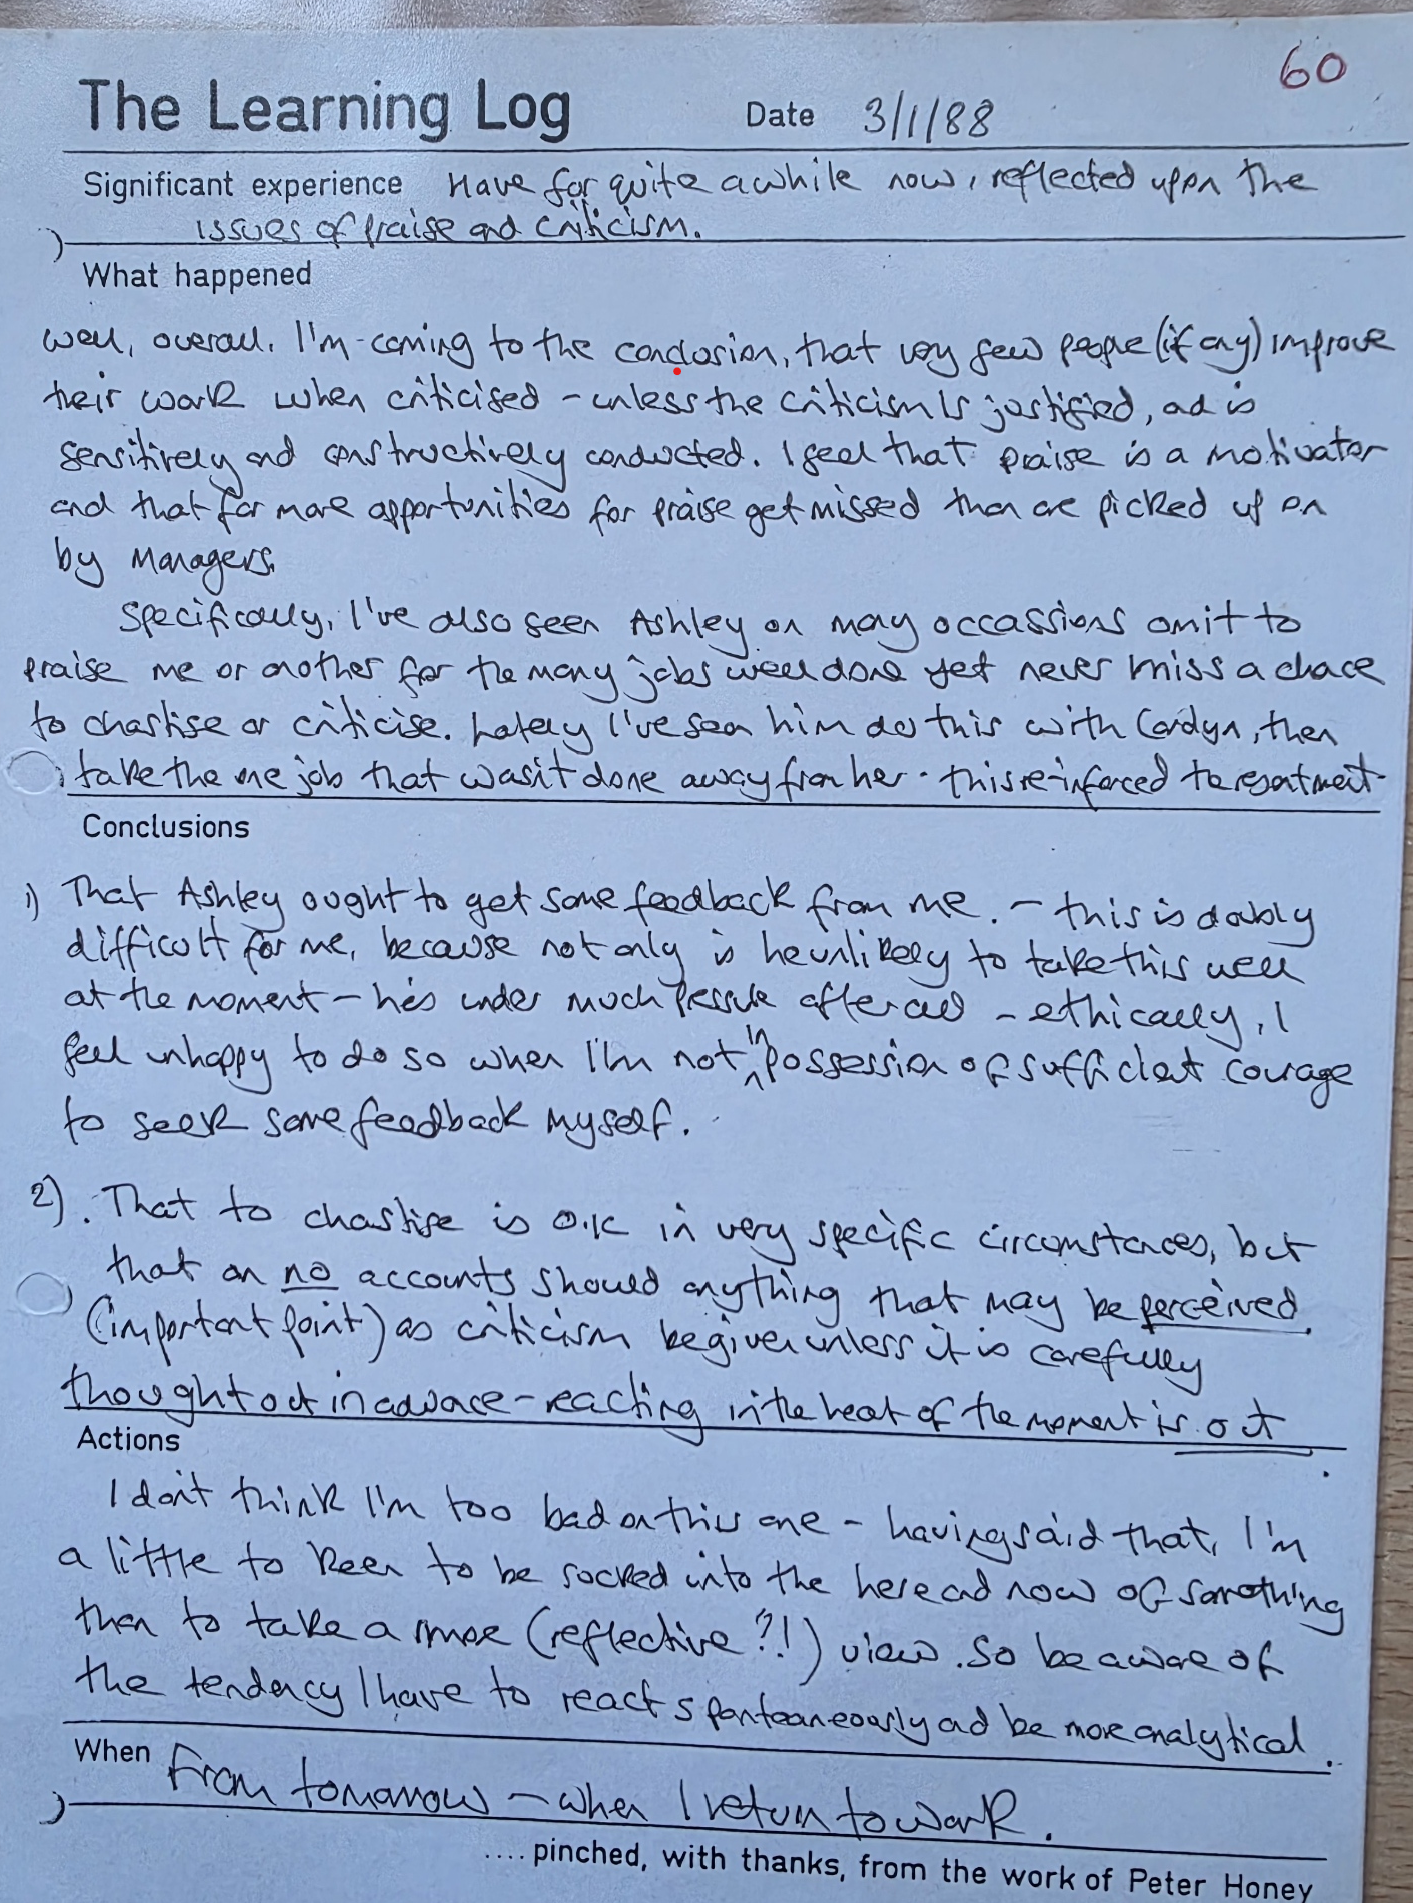 60
The Learning Log Date 3/1/88
Significant experience Have for quite awhile now, reflected upon the
issues of praise and criticism.
What happened
Well, overall, I'm coming to the conclusion, that very few people (if any) improve
their work when criticised - unless the criticism is justified, ad is
sensitively and constructively conducted. I feel that praise is a motivator
and that far more opportunities for praise get missed than are picked up on
by Managers.
Specifically, I've also seen Ashley on many occassions omit to
praise me or another for the many jobs well done yet never miss a chance
to chastise or criticise. Lately I've seen him do this with Carolyn, then
take the one job that wasn't done away from her - this re-inforced te resentment.
Conclusions
1) That Ashley ought to get some feedback from me. - this is doubly
difficult for me, because not only is he unlikely to take this well
at the moment - he's under much pressure after all - ethically, I
feel unhappy to do so when I'm not in possession of sufficient courage
to seek some feedback myself.
2). That to chastise is O.K in very specific circumstances, but
that on no accounts should anything that may be perceived
(important point) as criticism be given unless it is carefully
thought out in advance - reacting in the heat of the moment is out.
Actions
I don't think I'm too bad on this one - having said that, I'm
a little to keen to be sucked into the here and now of something
than to take a more (reflective?!) view. So be aware of
the tendency I have to react spontaneously ad be more analytical.
When From tomorrow - when I return to work.
.... pinched, with thanks, from the work of Peter Honey